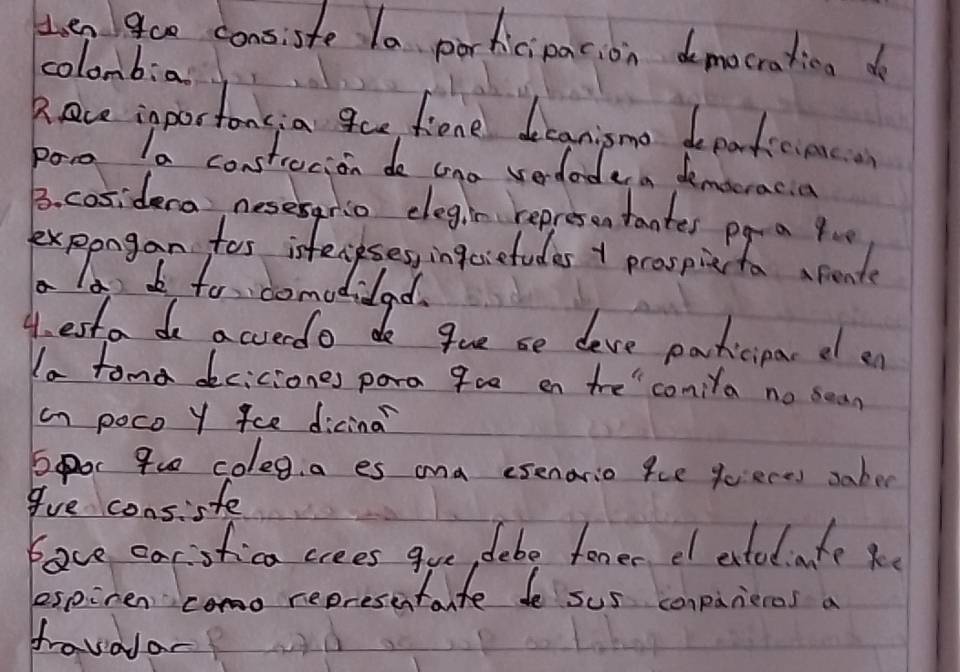 1.en que consiste la participación democratica de
colombia.
2.Que inportancia que tiene decanismo departicipacion
para la construcion de una verdadera democracia
3.cosidera nesesario elegir representantes para que
expongan tus isterpses, inquietudes y prospierta afrente
a la de tu comudidad.
4.esta de acuerdo de que se deve participar el en
la toma deciciones para que en tre "comita no sean
un poco y que dicina"
5 por que colegia es una esenario que quieres saber
que consiste
6 Que caristica crees que debe tener el estudiante que
espiren como representante de sus conpañeros a
travalar